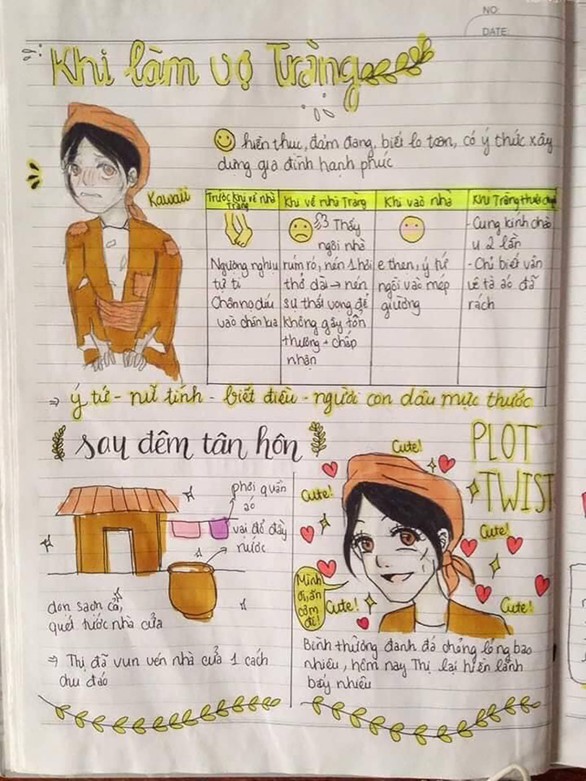 NO:
DATE:
Khi làm vợ Tràng
hiền thục, đảm đang, biết lo toan, có ý thức xây
dựng gia đình hạnh phúc
Kawaii
Trước khi về nhà
Tràng
Ngượng nghịu
tự ti
Chân nọ díu
vào chân kia
Khi về nhà Tràng
Thấy
ngôi nhà
rúm ró, nén 1 hơi
thở dài → nén
sự thất vọng để
không gây tổn
thương + chấp
nhận
Khi vào nhà
e thẹn, ý tứ
ngồi vào mép
giường
Khi Tràng thưa chuyện
- Cung kính chào
u 2 lần
- Chỉ biết vân
vê tà áo đã
rách
⇒ ý tứ - nữ tính - biết điều - người con dâu mực thước
say đêm tân hôn
phơi quần
áo
vại để đầy
nước
dọn sạch cỏ,
quét tước nhà cửa
⇒ Thị đã vun vén nhà cửa 1 cách
chu đáo
PLOT
TWIST
Cute!
Cute!
Cute!
Cute!
Cute!
Mình
ơi, ăn
cơm
đi!
Bình thường đanh đá chỏng lỏng bao
nhiêu, hôm nay Thị lại hiền lành
bấy nhiêu